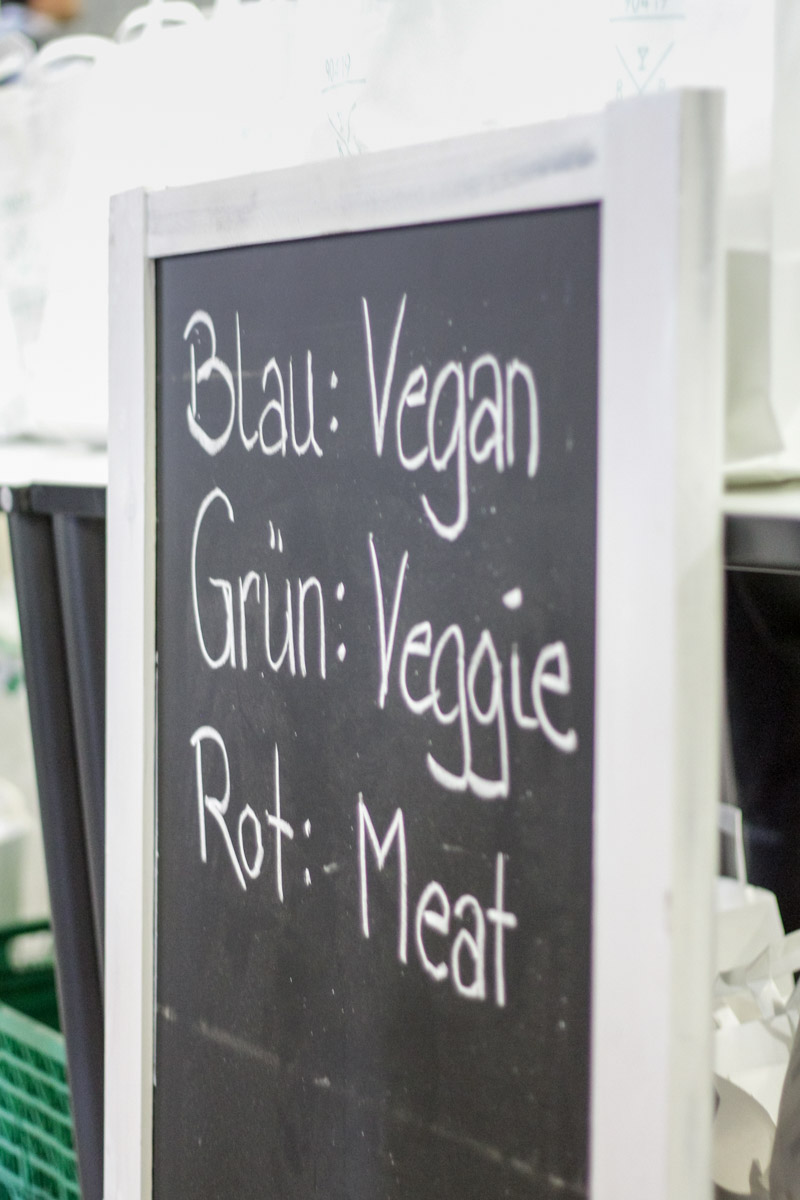 Blau: Vegan
Grün: Veggie
Rot: Meat